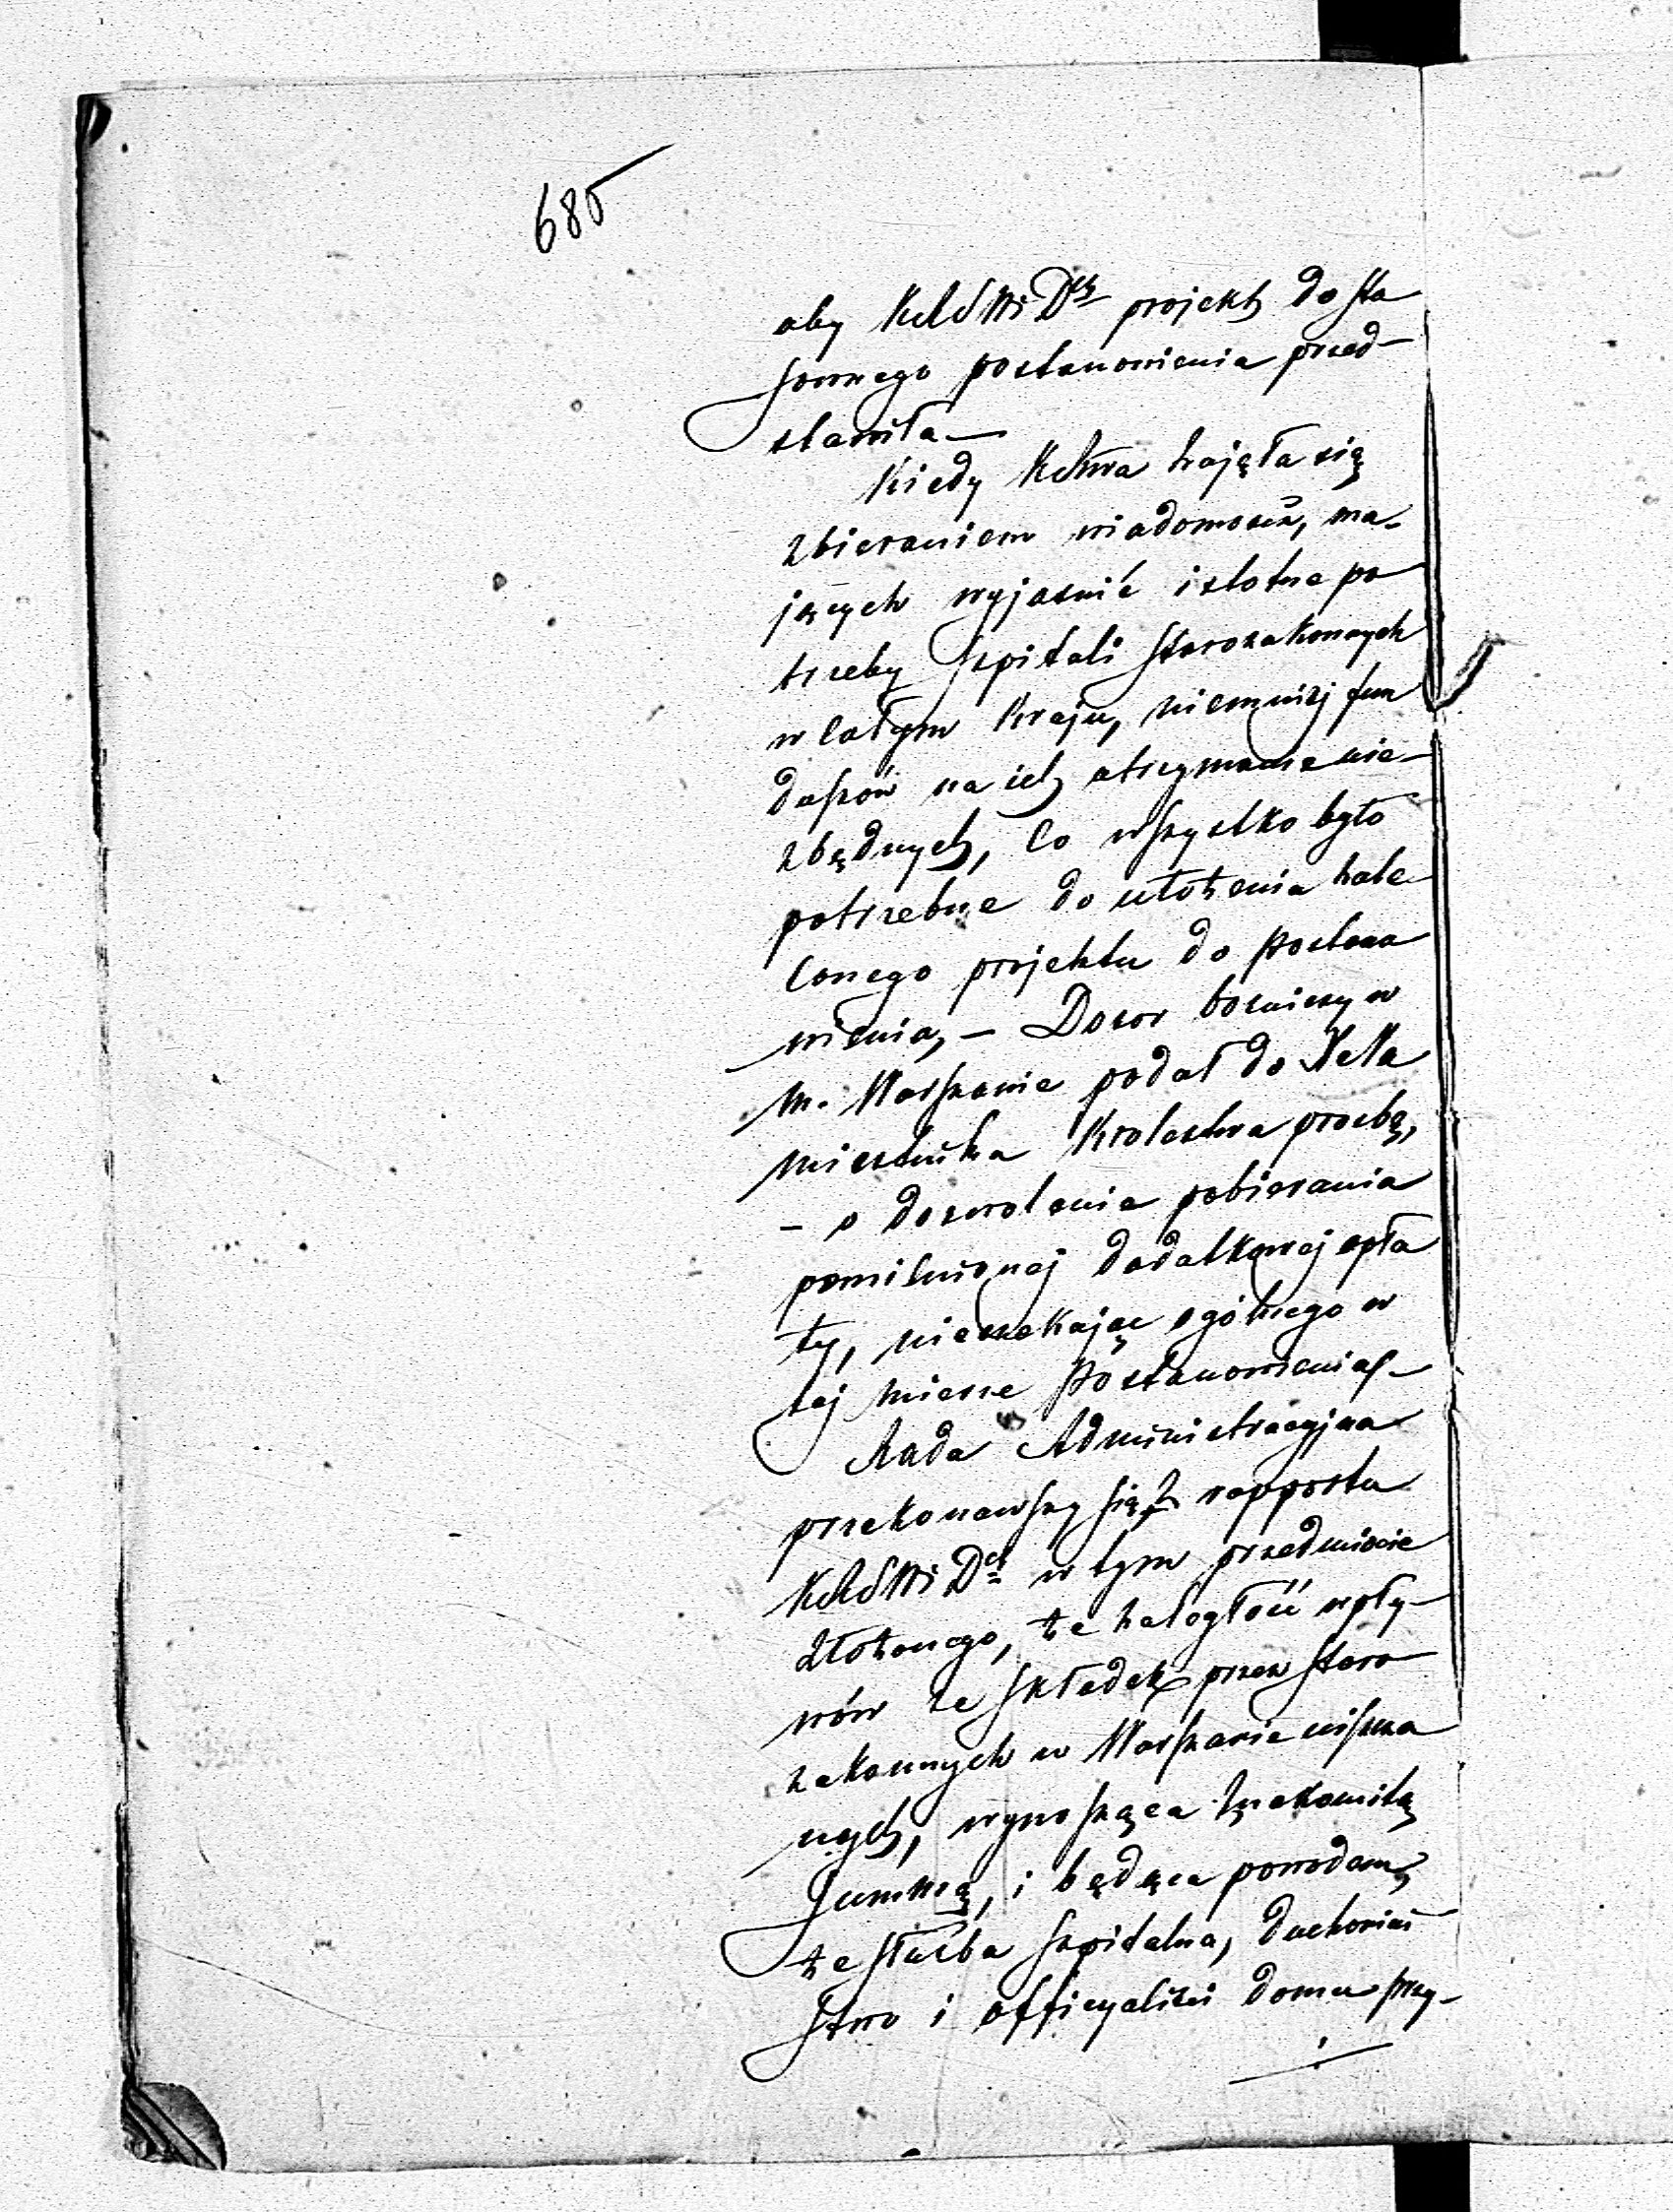 685
aby KRSWi Dch projekt do sto
sownego postanowienia przed-
stawiła —
Kiedy Kommisya zajęła się
zbieraniem wiadomości, ma-
jących wyjaśnić istotne po
trzeby szpitali starozakonnych
w całym kraju, niemniej fun
duszów na ich utrzymanie nie-
zbędnych, co wszystko było
potrzebne do ułożenia zale
conego projektu do postano
wienia, — Dozor bożniczy w
m. Warszawie podał do Xcia
Miestnika Krolestwa prosbę,
— o dozwolenie pobierania
pomienionej dodatkowej opła
ty, nieczekając ogólnego w
tej mierze postanowienia. —
Rada Administracyjna
przekonawszy się z rapportu
KRSWi Dch w tym przedmiocie
złożonego, że zaległość wpły-
wów ze składek przez staro
zakonnych w Warszawie uiszcza
nych, wynosząca znakomitą
summę, i będąca powodem,
że służba szpitalna, duchowień
stwo i officyaliści domu przy-